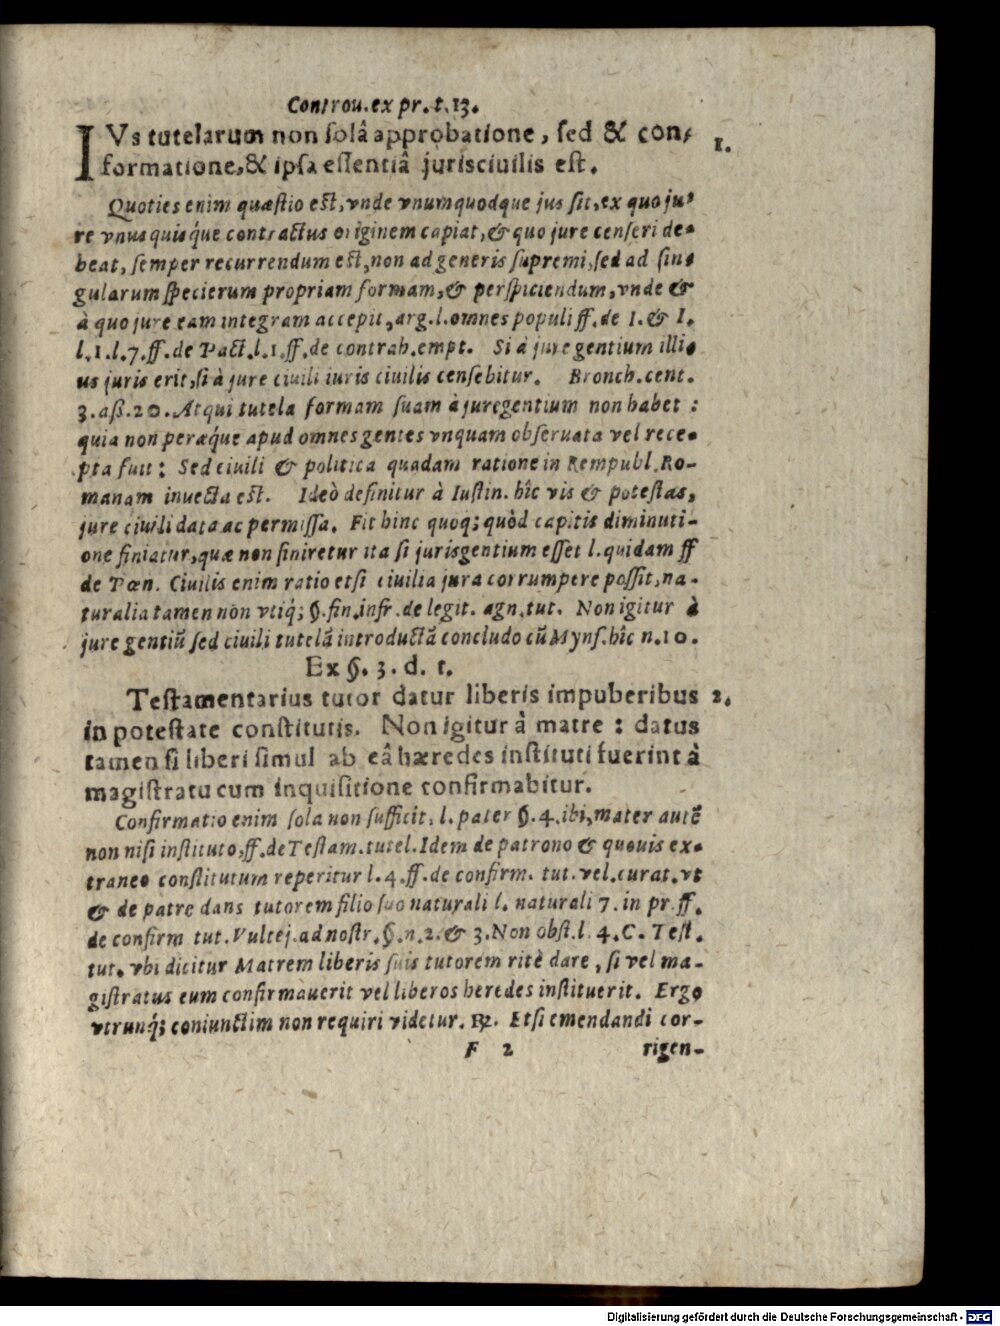 Controu. ex pr. t. 13.
IVs tutelarum non solâ approbatione, sed & con-
formatione, & ipsa essentiâ jurisciuilis est.
1.
Quoties enim quæstio est, vnde vnumquodque jus sit, ex quo ju-
re vnusquisq́ue contractus originem capiat, & quo jure censeri de-
beat, semper recurrendum est, non ad generis supremi, sed ad sin-
gularum specierum propriam formam, & perspiciendum, vnde &
à quo jure eam integram accepit, arg. l. omnes populi ff. de I. & I.
l. 1. l. 7. ff. de Pact. l. 1. ff. de contrah. empt. Si à jure gentium illi-
us juris erit, si à jure ciuili iuris ciuilis censebitur. Bronch. cent.
3. aß. 20. Atqui tutela formam suam à jure gentium non habet:
quia non peræq́ue apud omnes gentes vnquam obseruata vel rece-
pta fuit: Sed ciuili & politica quadam ratione in Rempubl. Ro-
manam inuecta est. Ideò definitur à Iustin. hîc vis & potestas,
jure ciuili data ac permissa. Fit hinc quoq; quòd capitis diminuti-
one finiatur, quæ non finiretur ita si jurisgentium esset l. quidam ff
de Pœn. Ciuilis enim ratio etsi ciuilia jura corrumpere possit, na-
turalia tamen non vtiq́; §. fin. infr. de legit. agn. tut. Non igitur à
jure gentiũ sed ciuili tutelã introductã concludo cũ Myns. hîc n. 10.
Ex §. 3. d. t.
Testamentarius tutor datur liberis impuberibus
2.
in potestate constitutis. Non igitur à matre: datus
tamen si liberi simul ab eâ hæredes instituti fuerint à
magistratu cum inquisitione confirmabitur.
Confirmatio enim sola non sufficit, l. pater §. 4. ibi, mater autẽ
non nisi instituto, ff. de Testam. tutel. Idem de patrono & quouis ex-
traneo constitutum reperitur l. 4. ff. de confirm. tut. vel. curat. vt
& de patre dans tutorem filio suo naturali l. naturali 7. in pr. ff.
de confirm tut. Vultej. ad nostr. §. n. 2. & 3. Non obst. l. 4. C. Test.
tut. vbi dicitur Matrem liberis suis tutorem ritè dare, si vel ma-
gistratus eum confirmauerit vel liberos heredes instituerit. Ergo
vtrunq́; coniunctim non requiri videtur. ℞. Etsi emendandi cor-
F 2
rigen-
Digitalisierung gefördert durch die Deutsche Forschungsgemeinschaft - DFG